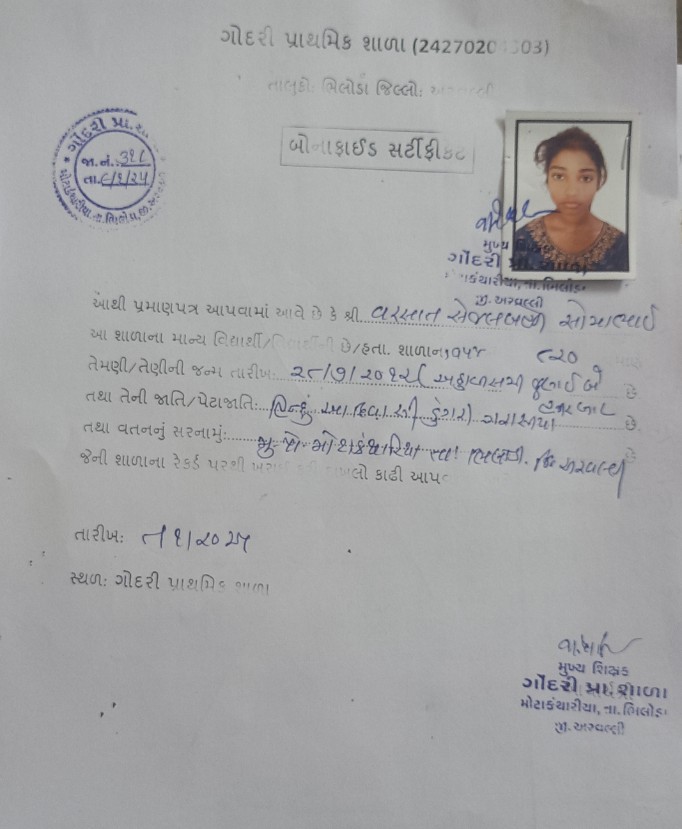 ગોદરી પ્રાથમિક શાળા (24270203303)
તાલુકો: ભિલોડા જિલ્લો: અરવલ્લી
ગોદરી પ્રા. શા.
જા.નં. ૩૧૮
તા. ૮/૧/૨૫
બોનાફાઈડ સર્ટીફીકેટ
મુખ્ય શિક્ષક
ગોદરી પ્રા. શાળા
મોટાકંથારીયા, તા. ભિલોડા
જી. અરવલ્લી
આથી પ્રમાણપત્ર આપવામાં આવે છે કે શ્રી વરસાત સેજલબેન સોમાભાઈ
આ શાળાના માન્ય વિદ્યાર્થી/વિદ્યાર્થીની છે/હતા. શાળાના ૧૭૫૪ ૮૨૦
તેમણી/તેણીની જન્મ તારીખ: ૨૮/૭/૨૦૧૨ અઠ્ઠાવીસમી જુલાઈ બે છે
હજાર બાર
તથા તેની જાતિ/પેટાજાતિ: હિન્દુ આદિવાસી ડુંગરી ગરાસીયા છે.
તથા વતનનું સરનામું: મુ.પો મોટાકંથારિયા તા. ભિલોડા. જિ અરવલ્લી છે
જેની શાળાના રેકર્ડ પરથી ખરાઈ કરી દાખલો કાઢી આપ
તારીખ: ૮/૧/૨૦૨૫
સ્થળ: ગોદરી પ્રાથમિક શાળા
મુખ્ય શિક્ષક
ગોદરી પ્રા. શાળા
મોટાકંથારીયા, તા. ભિલોડા
જી. અરવલ્લી